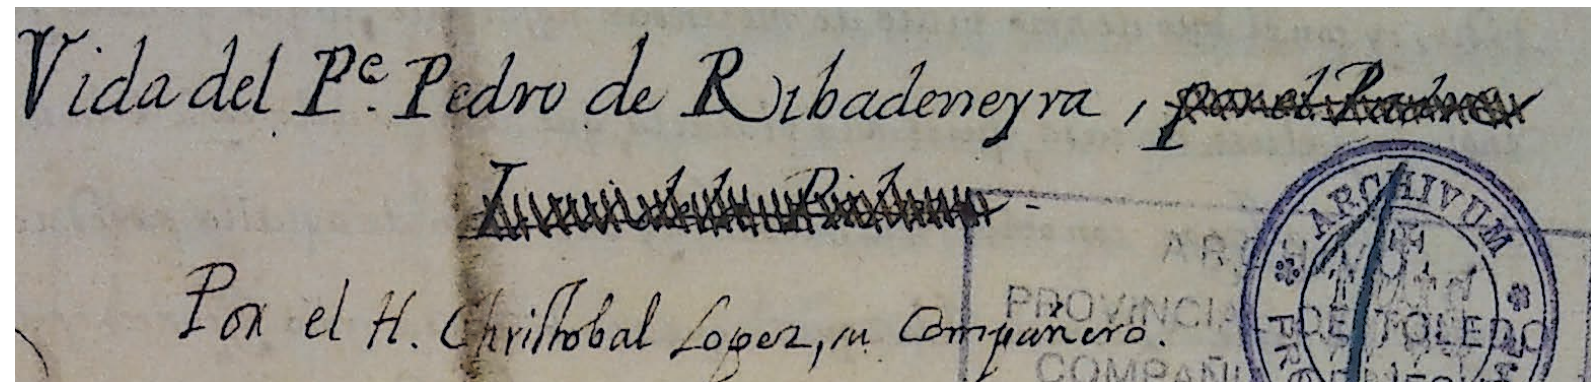 Vida del Pe. Pedro de Ribadeneyra, por el Padre
Por el H. Christobal Lopez, su Compañero.
ARCHIVUM
PROVINCIAL DE TOLEDO